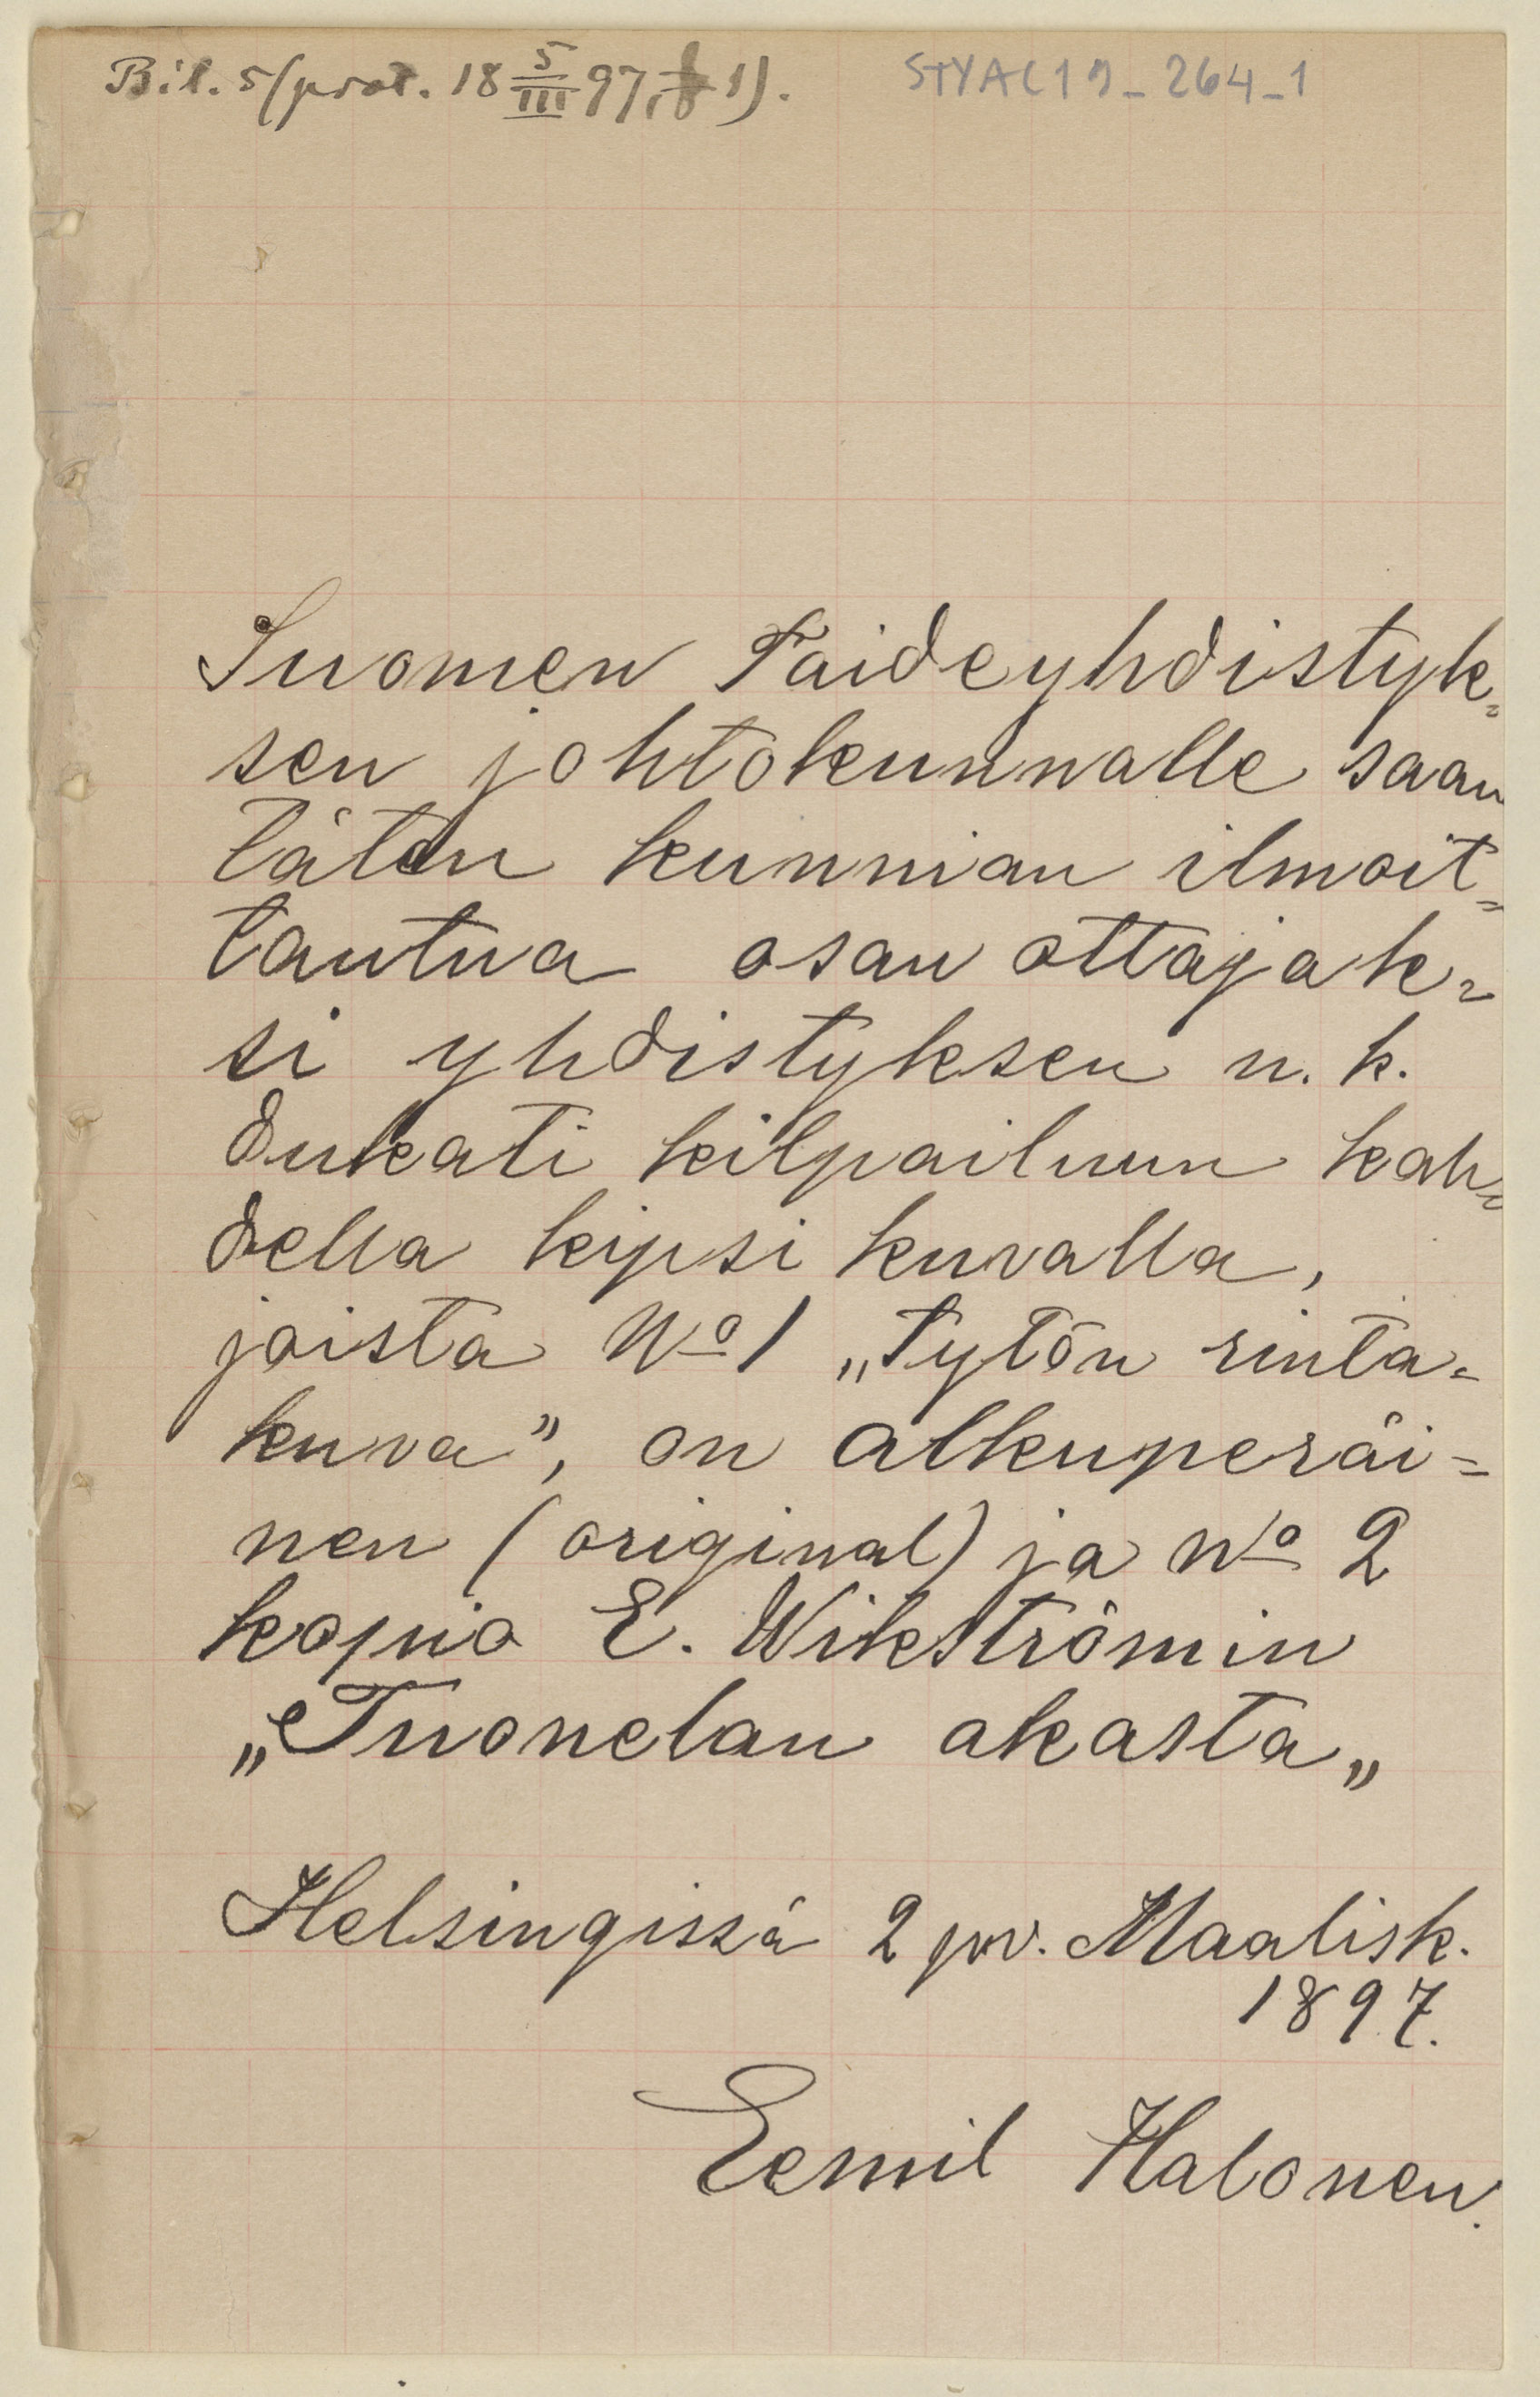 Bil. 5 (prot. 18 5/III 97, § 1).
STYAC19_264_1
Suomen Taideyhdistyk=
sen johtokunnalle saan
täten kunnian ilmoit=
tautua osan ottajak=
si yhdistyksen n. k.
dukati kilpailuun kah=
della kipsi kuvalla,
joista No 1 „Tytön rinta=
kuva”, on alkuperäi=
nen (original) ja No 2
kopio E. Wikströmin
„Tuonelan akasta„
Helsingissä 2 pv. Maalisk.
1897.
Eemil Halonen.